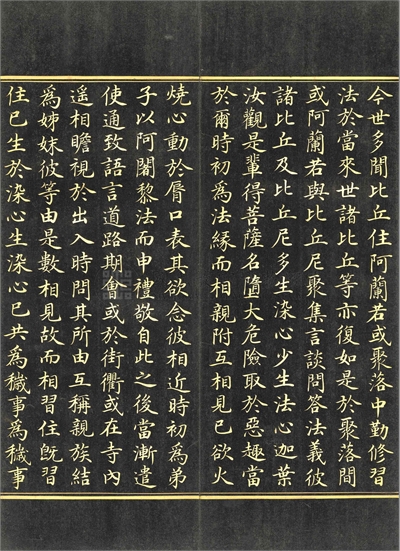 今世多聞比丘住阿蘭若或聚落中勤修習
法於當來世諸比丘等亦復如是於聚落間
或阿蘭若與比丘尼聚集言談問答法義彼
諸比丘及比丘尼多生染心少生法心迦葉
汝觀是輩得菩薩名墮大危險取於惡趣當
於爾時初為法緣而相親附互相見已欲火
燒心動於脣口表其欲念彼相近時初為弟
子以阿闍黎法而申禮敬自此之後當漸遣
使通致語言道路期會或於街衢或在寺內
遥相瞻視於出入時問其所由互稱親族結
為姊妹彼等由是數相見故而相習住既習
住已生於染心生染心已共為穢事為穢事